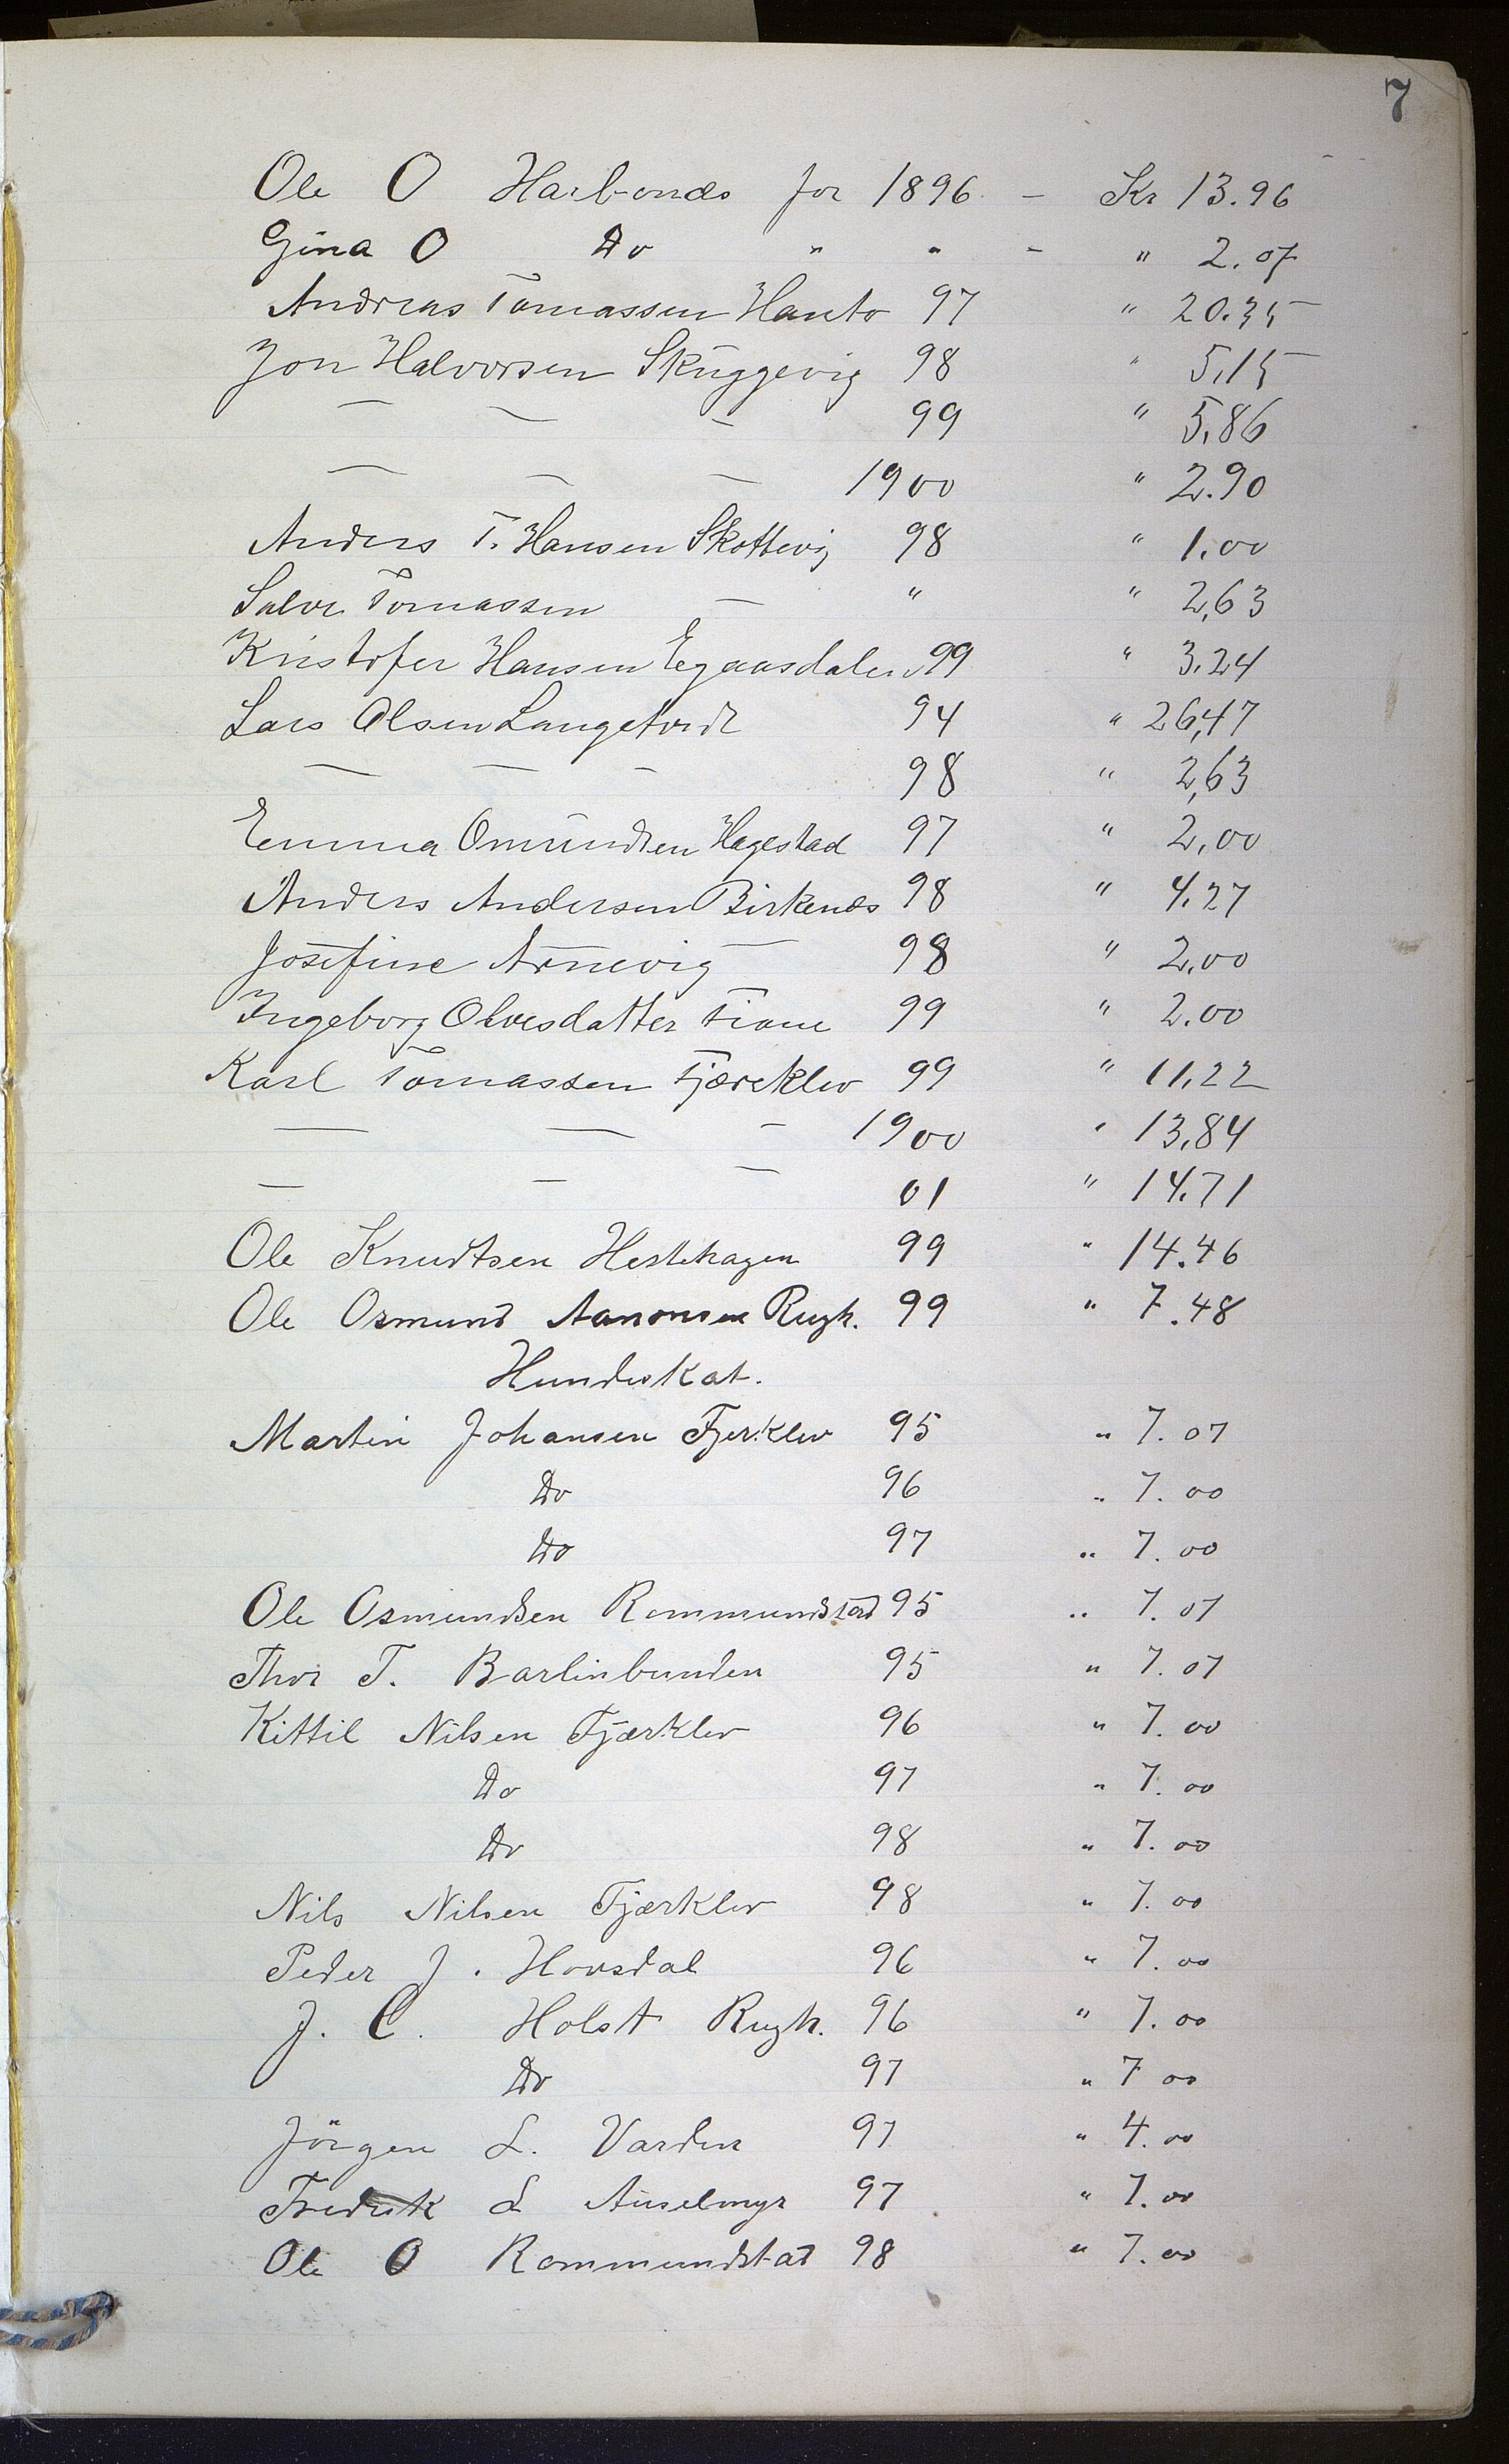 7
Ole O Harbonds for 1896 - Kr 13.96
Gina O Do " " - " 2.07
Andreas Tomassen Hanto 97 " 20.35
Jon Halvorsen Skuggevig 98 " 5,15
— — - 99 " 5,86
— — — 1900 " 2.90
Anders T. Hansen Skottevig 98 " 1.00
Salve Tomassen — " " 2,63
Kristofer Hansen Egaasdalen 99 " 3.24
Lars Olsen Langejordt 94 " 26,47
— — - 98 " 2,63
Emma Omundsen Hagestad 97 " 2,00
Anders Andersen Birkenæs 98 " 4.27
Josefine Arnevig — 98 " 2,00
Ingeborg Olvesdatter Fiane 99 " 2.00
Karl Tomassen Fjæreklev 99 " 11,22
— — - 1900 " 13,84
— — — 01 " 14.71
Ole Knudtsen Hestehagen 99 " 14.46
Ole Osmund Aanonsen Rugh. 99 " 7.48
Hundeskat.
Martin Johansen Fjerklev 95 " 7.07
Do 96 " 7.00
Do 97 " 7.00
Ole Osmundsen Rommundstad 95 " 7.07
Thor T. Barlinbunden 95 " 7.07
Kittil Nilsen Fjærklev 96 " 7.00
Do 97 " 7.00
Do 98 " 7.00
Nils Nilsen Fjærklev 98 " 7.00
Peder J. Hovsdal 96 " 7.00
J. C. Holst Rugh. 96 " 7.00
Do 97 " 7 00
Jörgen L. Varden 97 " 4.00
Fredrik L Auselmyr 97 " 7.00
Ole O Rommundstad 98 " 7.00